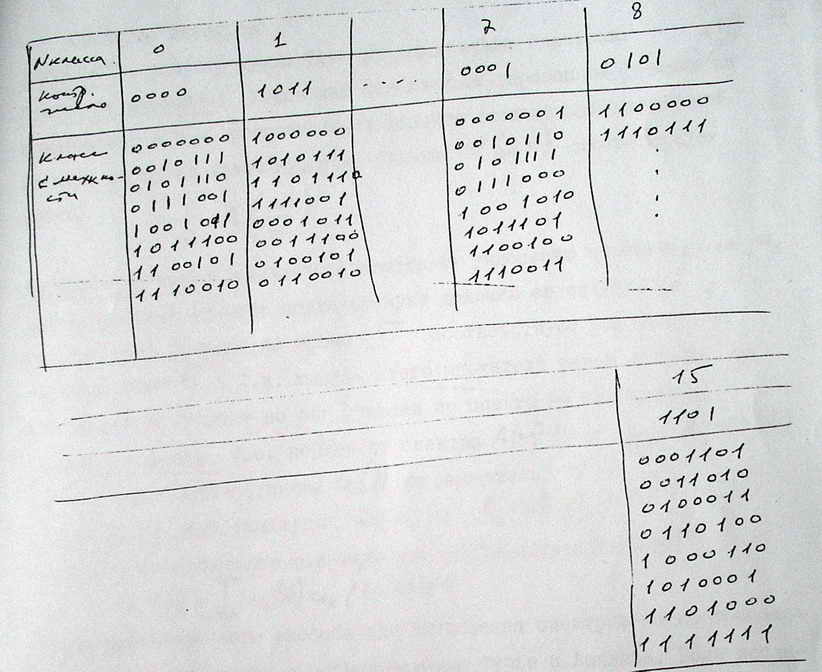 N класса 0 1 7 8
контр. число 0000 1011 .... 0001 0101
Класс смежности
0000000 1000000 0000001 1100000
0010111 1010111 0010110 1110111
0101110 1101110 0101111 .
0111001 1111001 0111000 .
1001011 0001011 1001010 .
1011100 0011100 1011101 .
1100101 0100101 1100100
1110010 0110010 1110011
15
1101
0001101
0011010
0100011
0110100
1000110
1010001
1101000
1111111